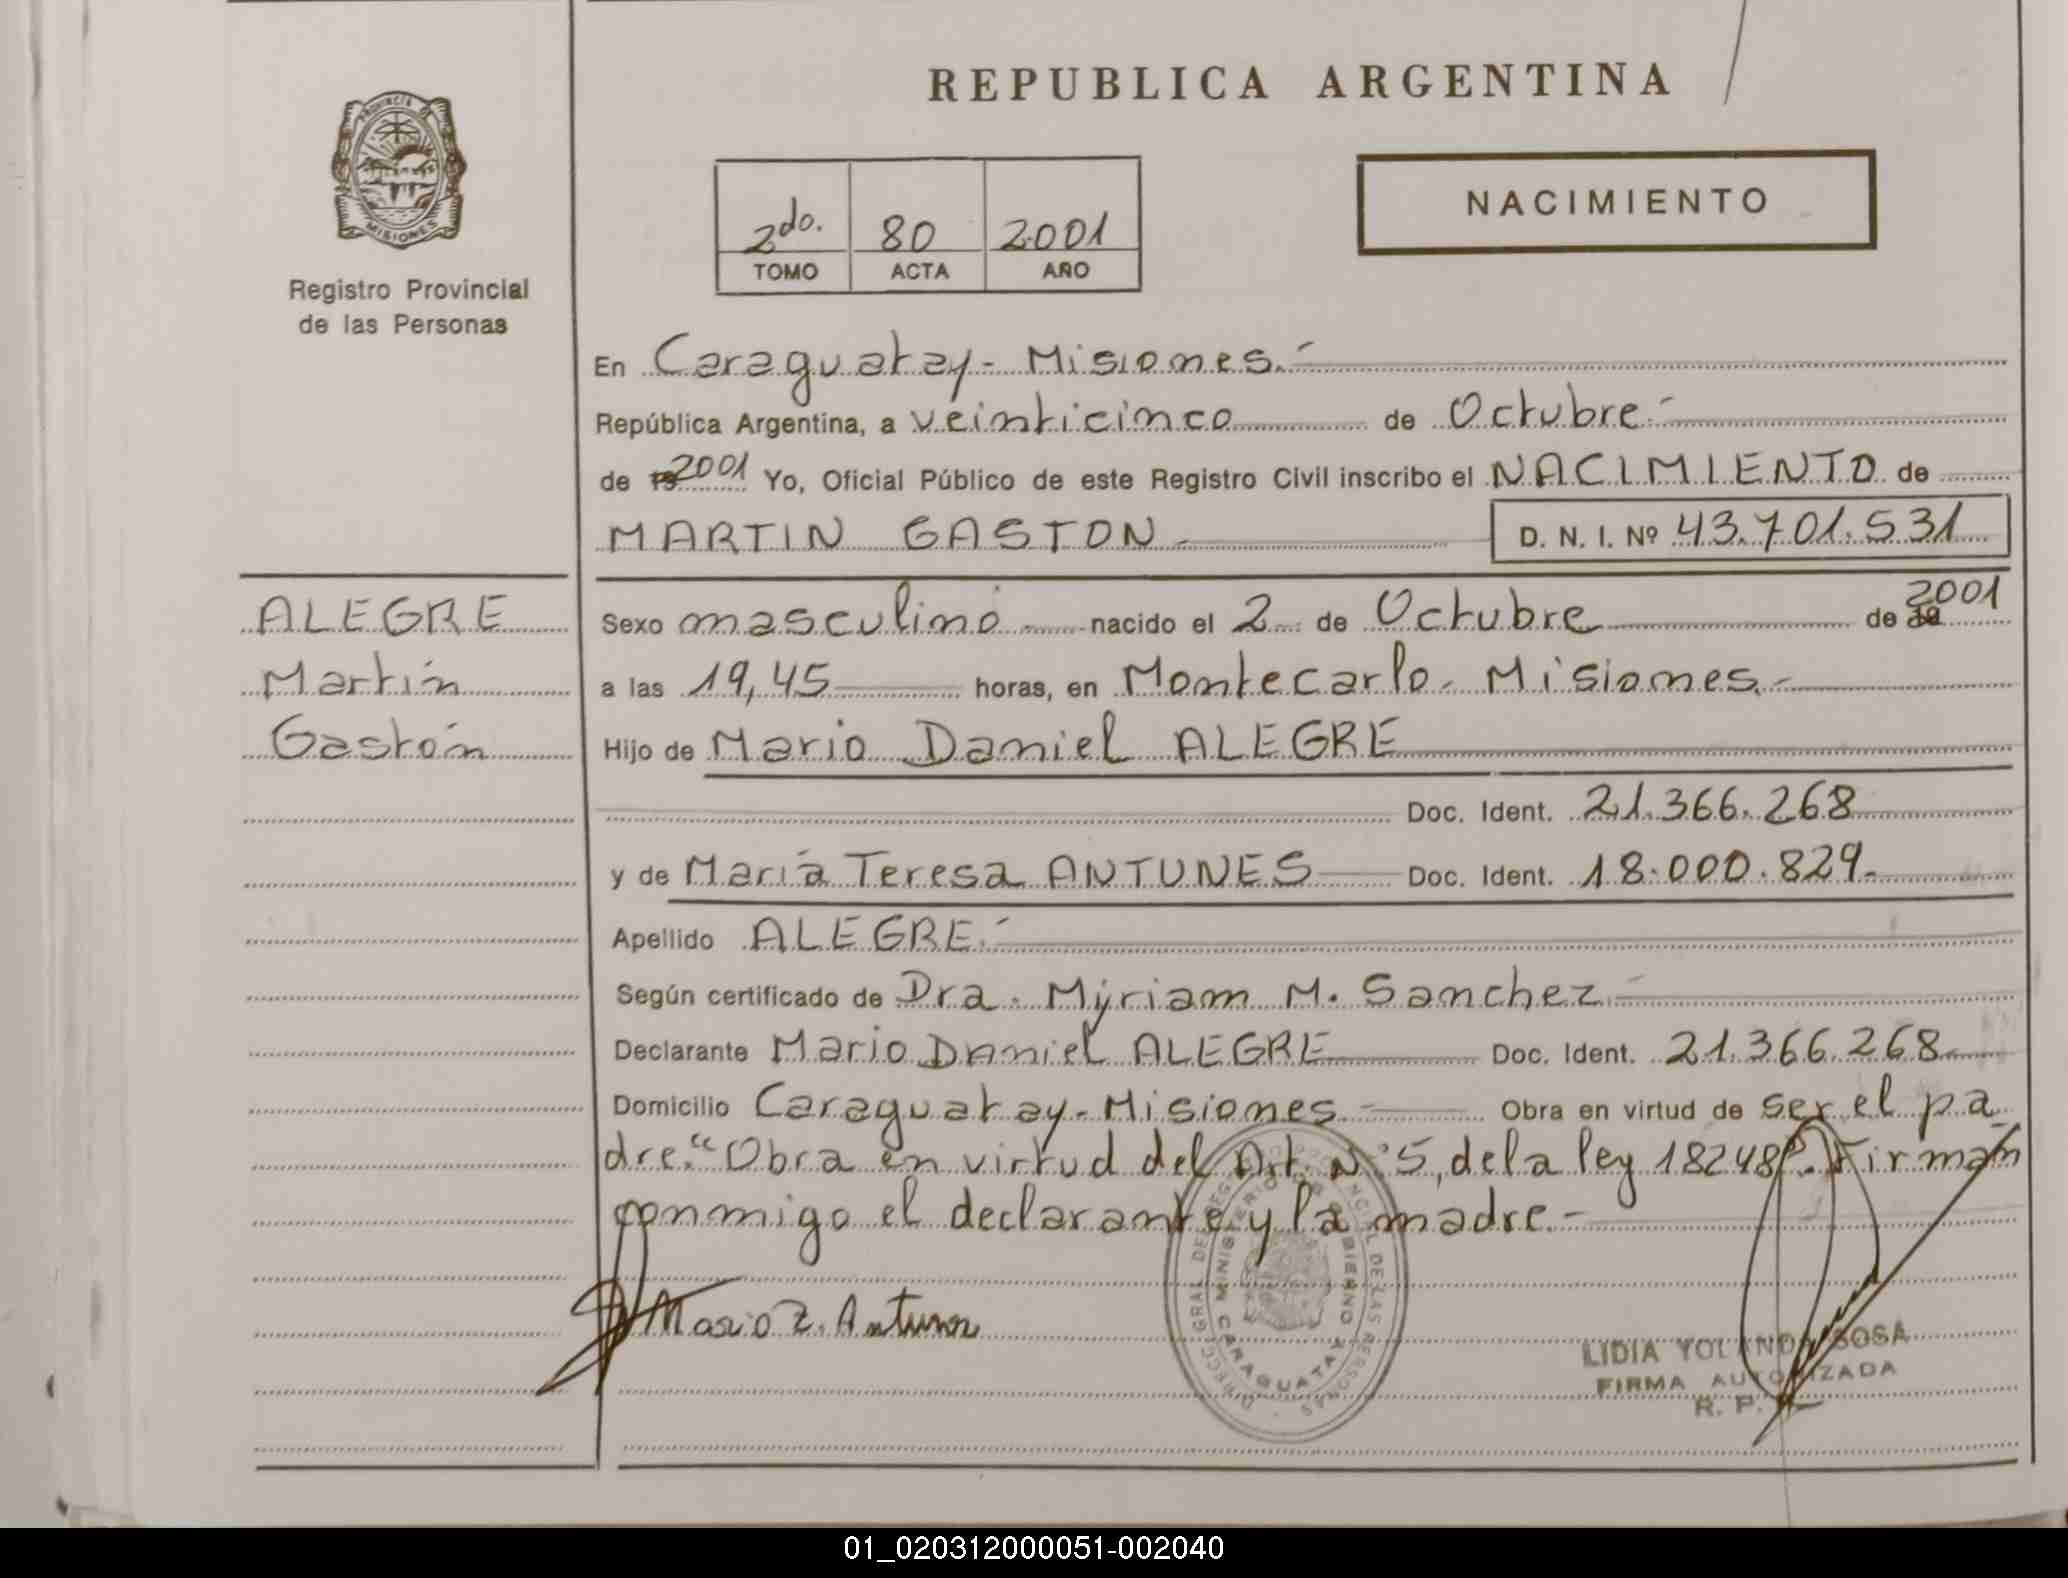 REPUBLICA ARGENTINA
PROVINCIA DE
MISIONES
Registro Provincial
de las Personas
2do. 80 2001
TOMO ACTA AÑO
NACIMIENTO
En Caraguatay - Misiones.-
República Argentina, a veinticinco de Octubre.-
de 2001 Yo, Oficial Público de este Registro Civil inscribo el NACIMIENTO de
MARTIN GASTON D. N. I. Nº 43.701.531
ALEGRE
Martín
Gastón
Sexo masculino nacido el 2 de Octubre de 2001
a las 19,45 horas, en Montecarlo - Misiones.-
Hijo de Mario Daniel ALEGRE
Doc. Ident. 21.366.268
y de María Teresa ANTUNES Doc. Ident. 18.000.829.-
Apellido ALEGRE.-
Según certificado de Dra. Myriam M. Sanchez
Declarante Mario Daniel ALEGRE Doc. Ident. 21.366.268
Domicilio Caraguatay - Misiones Obra en virtud de ser el pa
dre. "Obra en virtud del Art. N° 5, de la ley 18248". Firman
conmigo el declarante y la madre.-
MINISTERIO DE GOBIERNO
CARAGUATAY
LIDIA YOLANDA SOSA
FIRMA AUTORIZADA
R. P.
01_020312000051-002040